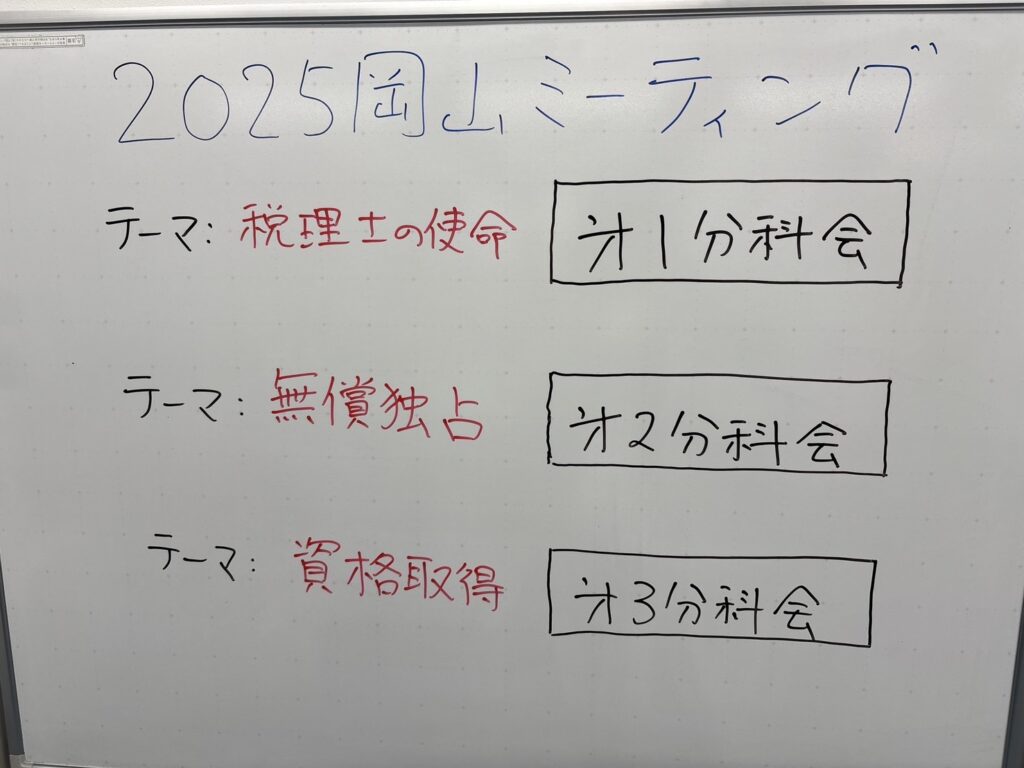 2025岡山ミーティング
テーマ：税理士の使命 才1分科会
テーマ：無償独占 才2分科会
テーマ：資格取得 才3分科会